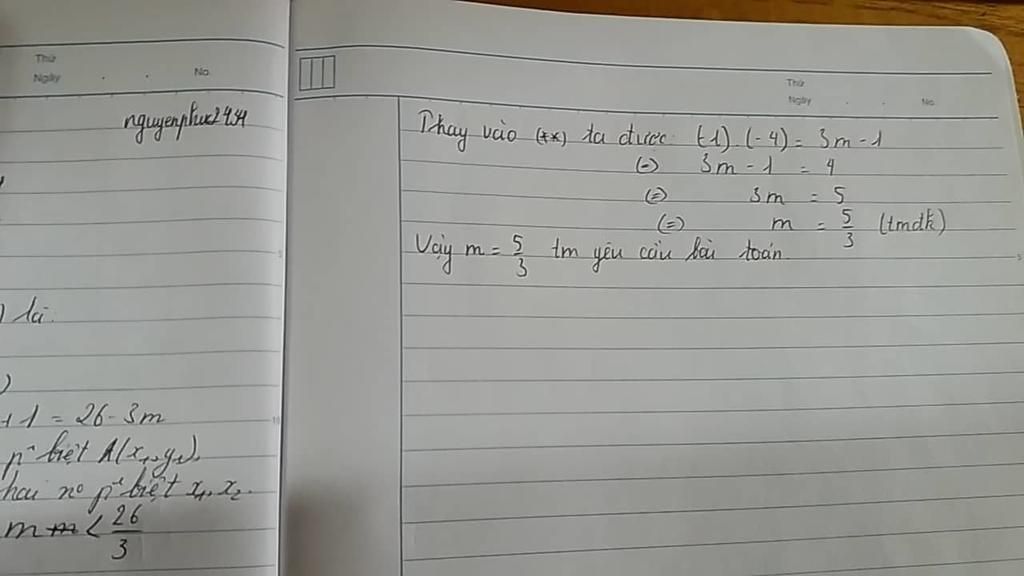 Thứ
Ngày . . No.
nguyenphuc2434
) là:
)
+ 1 = 26 - 3m
p² biệt A(x₁, y₁),
hai nº p² biệt x₁, x₂.
m < 26/3
Thứ
Ngày . . No.
Thay vào (**) ta được: (-1).(-4) = 3m - 1
(=) 3m - 1 = 4
(=) 3m = 5
(=) m = 5/3 (tmđk)
Vậy m = 5/3 tm yêu cầu bài toán.
5
10
5